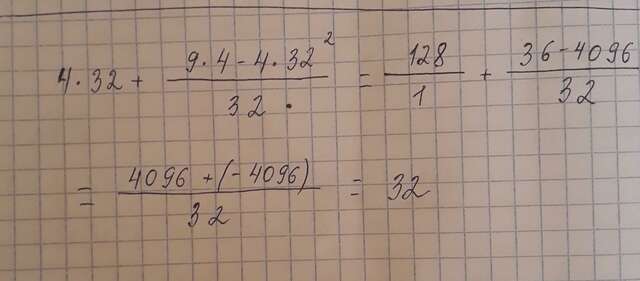 4·32 + (9·4 - 4·32²)/(32·) = 128/1 + (36 - 4096)/32
= (4096 + (-4096))/32 = 32